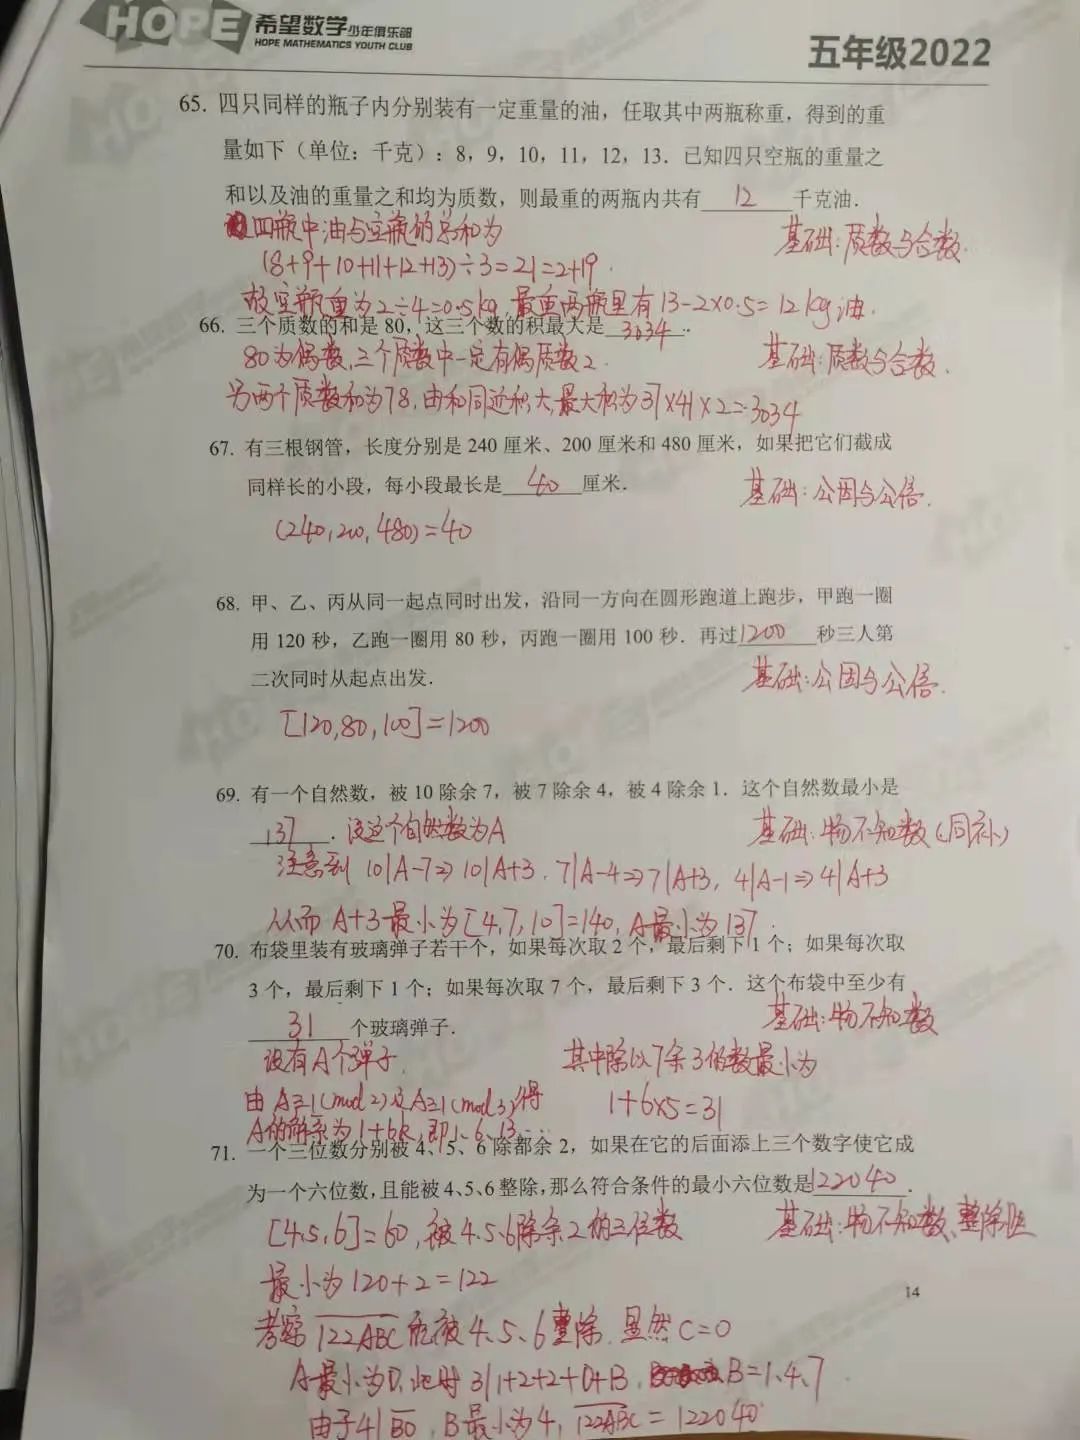 HOPE 希望数学少年俱乐部
HOPE MATHEMATICS YOUTH CLUB
五年级2022
65. 四只同样的瓶子内分别装有一定重量的油，任取其中两瓶称重，得到的重
量如下（单位：千克）：8，9，10，11，12，13．已知四只空瓶的重量之
和以及油的重量之和均为质数，则最重的两瓶内共有 12 千克油．
四瓶中油与空瓶的总和为
基础:质数与合数.
(8+9+10+11+12+13)÷3=21=2+19.
故空瓶重为2÷4=0.5kg,最重两瓶里有13-2×0.5=12kg油.
66. 三个质数的和是 80，这三个数的积最大是 3034 ．
80为偶数,三个质数中一定有偶质数2.
基础:质数与合数.
另两个质数和为78,由和同近积大,最大积为31×41×2=3034
67. 有三根钢管，长度分别是 240 厘米、200 厘米和 480 厘米，如果把它们截成
同样长的小段，每小段最长是 40 厘米．
基础:公因与公倍.
(240,200,480)=40
68. 甲、乙、丙从同一起点同时出发，沿同一方向在圆形跑道上跑步，甲跑一圈
用 120 秒，乙跑一圈用 80 秒，丙跑一圈用 100 秒．再过 1200 秒三人第
二次同时从起点出发．
基础:公因与公倍.
[120,80,100]=1200
69. 有一个自然数，被 10 除余 7，被 7 除余 4，被 4 除余 1．这个自然数最小是
137 ．设这个自然数为A
基础:物不知数(同补)
注意到 10|A-7⇒10|A+3, 7|A-4⇒7|A+3, 4|A-1⇒4|A+3
从而 A+3最小为[4,7,10]=140, A最小为137.
70. 布袋里装有玻璃弹子若干个，如果每次取 2 个，最后剩下 1 个；如果每次取
3 个，最后剩下 1 个；如果每次取 7 个，最后剩下 3 个．这个布袋中至少有
31 个玻璃弹子．
基础:物不知数
设有A个弹子.
其中除以7余3的数最小为
由 A≡1(mod 2)及A≡1(mod 3)得
1+6×5=31
A的解系为1+6k,即1、6、13…
71. 一个三位数分别被 4、5、6 除都余 2，如果在它的后面添上三个数字使它成
为一个六位数，且能被 4、5、6 整除，那么符合条件的最小六位数是 122040 ．
[4,5,6]=60,被4、5、6除余2的三位数
基础:物不知数、整除性
最小为120+2=122
14
考察 122ABC 能被4、5、6整除.显然C=0
A最小为0,此时3|1+2+2+0+B, B=1、4、7
由于4|B0, B最小为4, 122ABC=122040